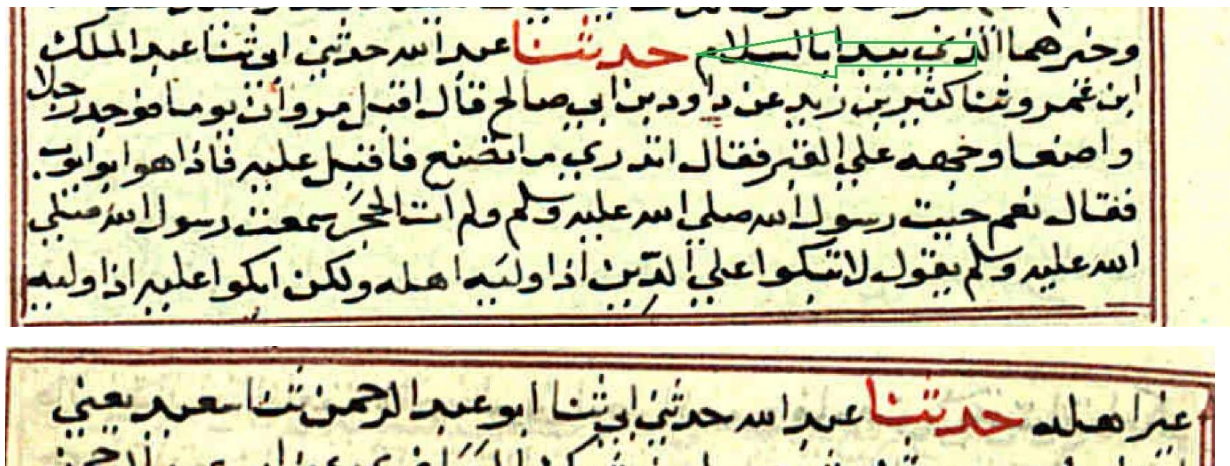 وخيرهما الذي يبدا بالسلام حدثنا عبد الله حدثني ابي ثنا عبد الملك
ابن عمرو ثنا كثير بن زيد عن داود بن ابي صالح قال اقبل مروان يوما فوجد رجلا
واضعا وجهه علي القبر فقال اتدري ما تصنع فاقبل عليه فاذا هو ابو ايوب
فقال نعم جيت رسول الله صلي الله عليه وسلم ولم آت الحجر سمعت رسول الله صلي
الله عليه وسلم يقول لا تبكوا علي الدين اذا وليه اهله ولكن ابكوا عليه اذا وليه
غير اهله حدثنا عبد الله حدثني ابي ثنا ابو عبد الرحمن ثنا سعيد يعني